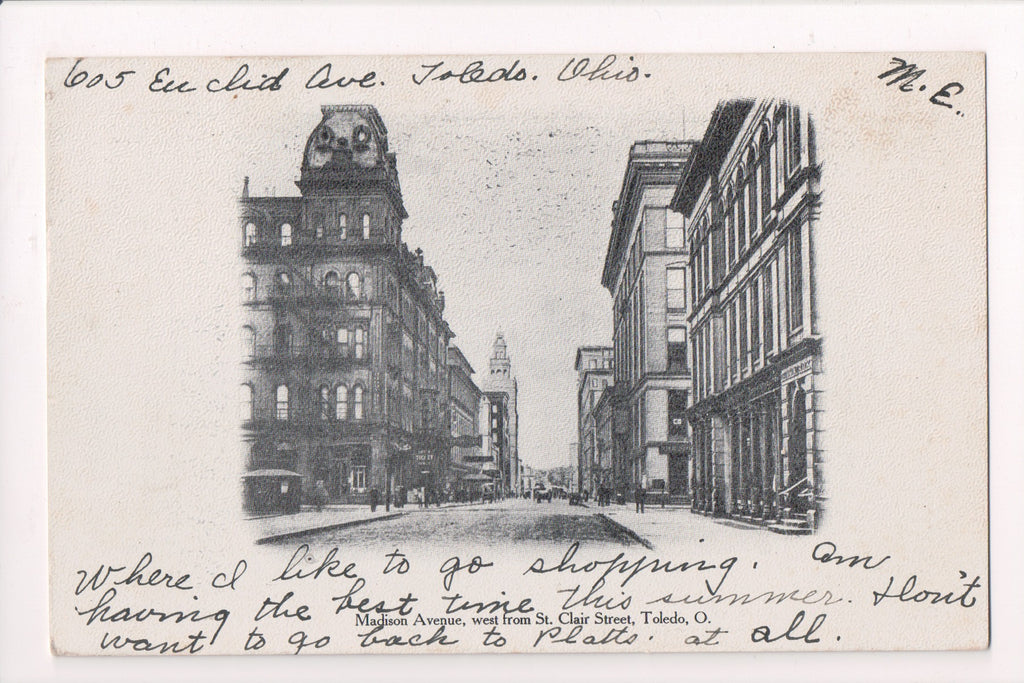 605 Euclid Ave. Toledo. Ohio.
M. E.
Where I like to go shopping. Am
having the best time this summer. Don't
Madison Avenue, west from St. Clair Street, Toledo, O.
want to go back to Platts. at all.